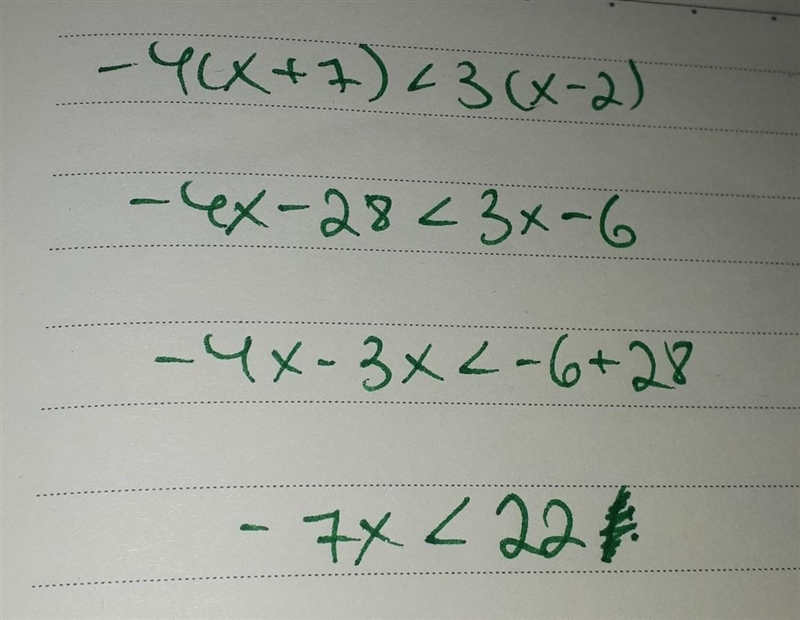 -4(x+7)<3(x-2)
-4x-28<3x-6
-4x-3x<-6+28
-7x<22